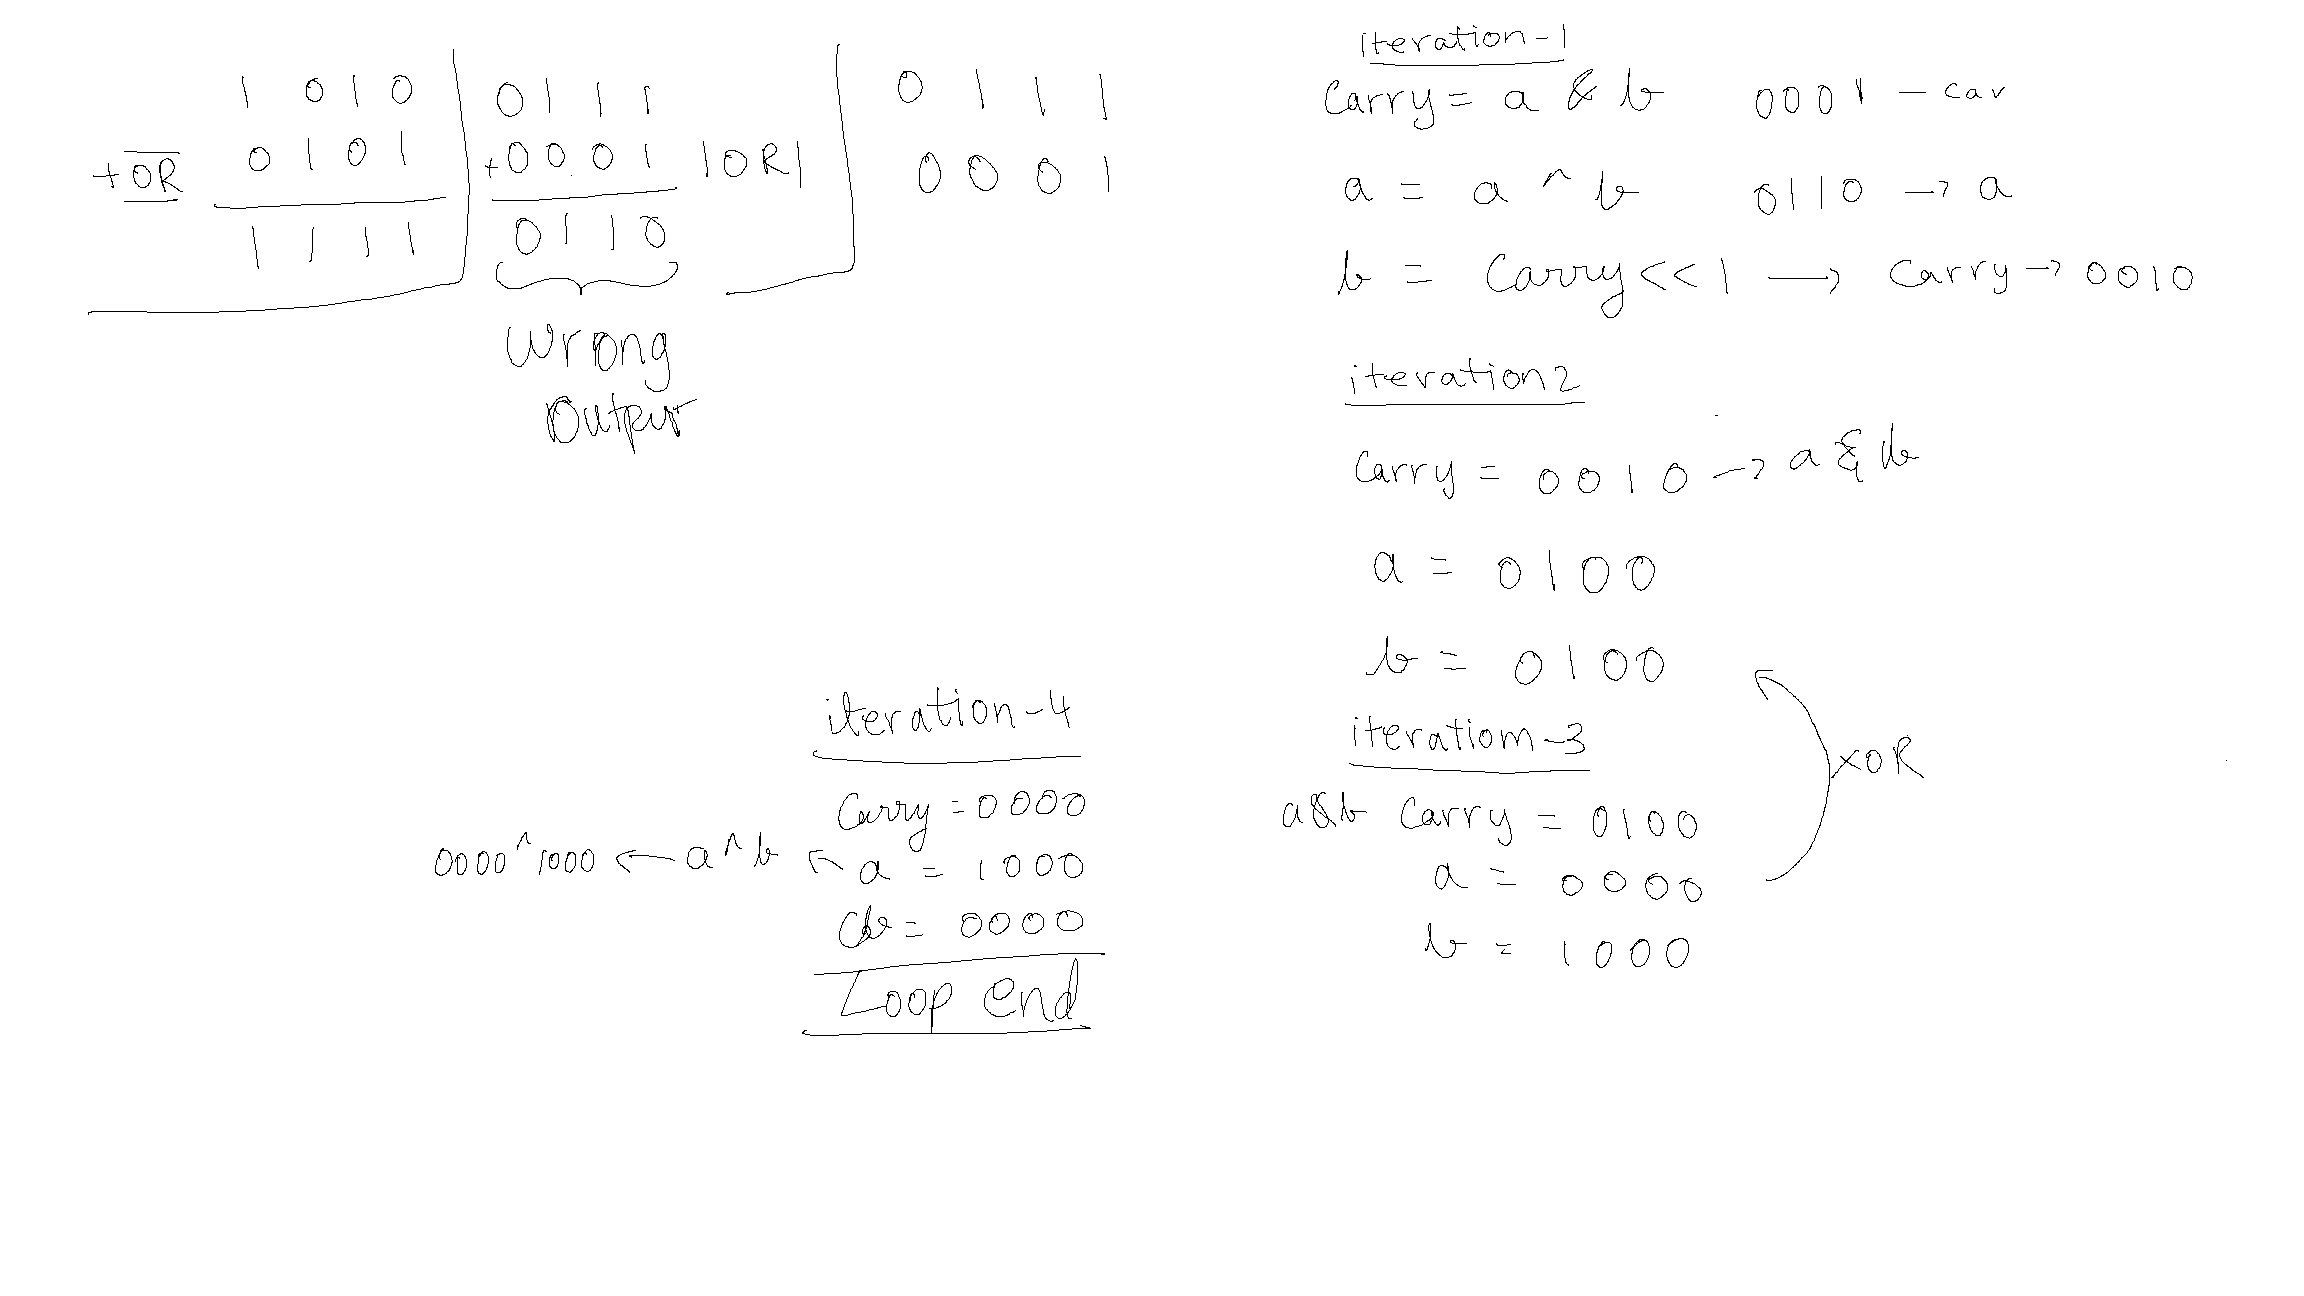 1 0 1 0
+OR 0 1 0 1
1 1 1 1
0 1 1 1
+0 0 0 1 |OR|
0 1 1 0
Wrong
Output
0 1 1 1
0 0 0 1
iteration-1
Carry = a & b 0001 - car
a = a ^ b 0110 → a
b = Carry<<1 → Carry → 0010
iteration2
Carry = 0010 → a & b
a = 0100
b = 0100
iteration-3
a&b Carry = 0100
a = 0000
b = 1000
XOR
iteration-4
Carry = 0000
0000^1000 ← a^b ← a = 1000
b = 0000
Loop end